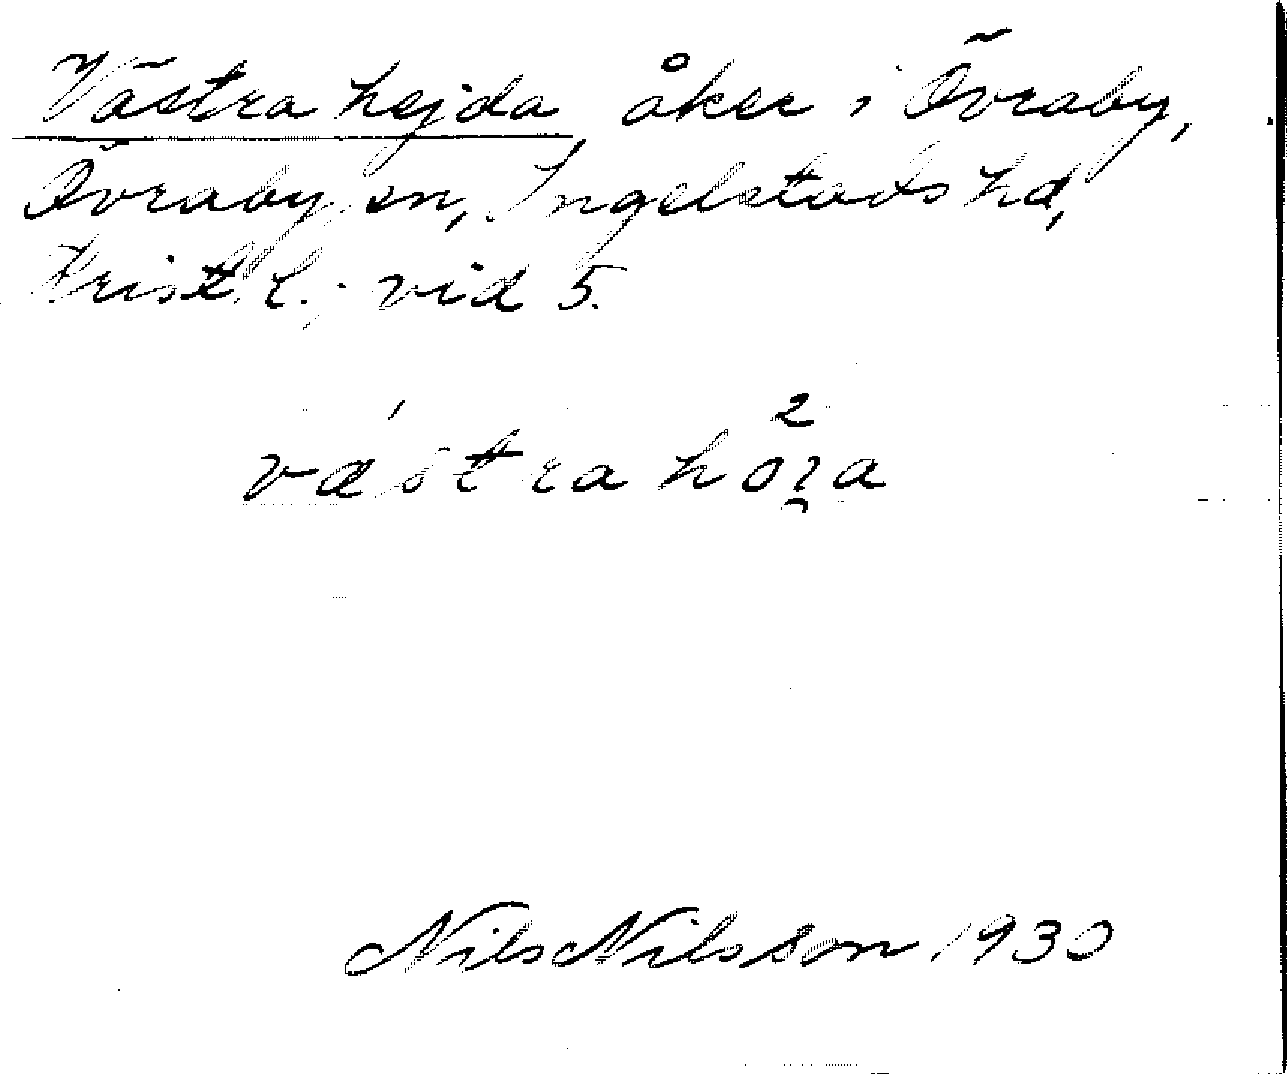 Västra hejda, åker i Övraby,
Övraby sn, Ingelstads hd,
Krist. l.; vid 5.
västra
Nils Nilsson 1930